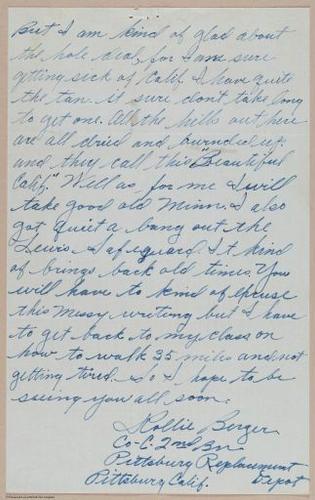 But I am kind of glad about
the hole deal, for I am sure
getting sick of Calif. I have quite
the tan. it sure don't take long
to get one. All the hills out here
are all dried and burnded up.
and they call this "Beautiful
Calif." Well as for me I will
take good old Minn. I also
got quiet a bang out the
Lewis Safeguard. It kind
of brings back old times. You
will have to kind of excuse
this messy writing but I have
to get back to my class on
how to walk 35 miles and not
getting tired. So I hope to be
seeing you all soon.
Rollie Berger
Co-C. 2nd Bn
Pittsburg Replacement
Depot
Pittsburg Calif.